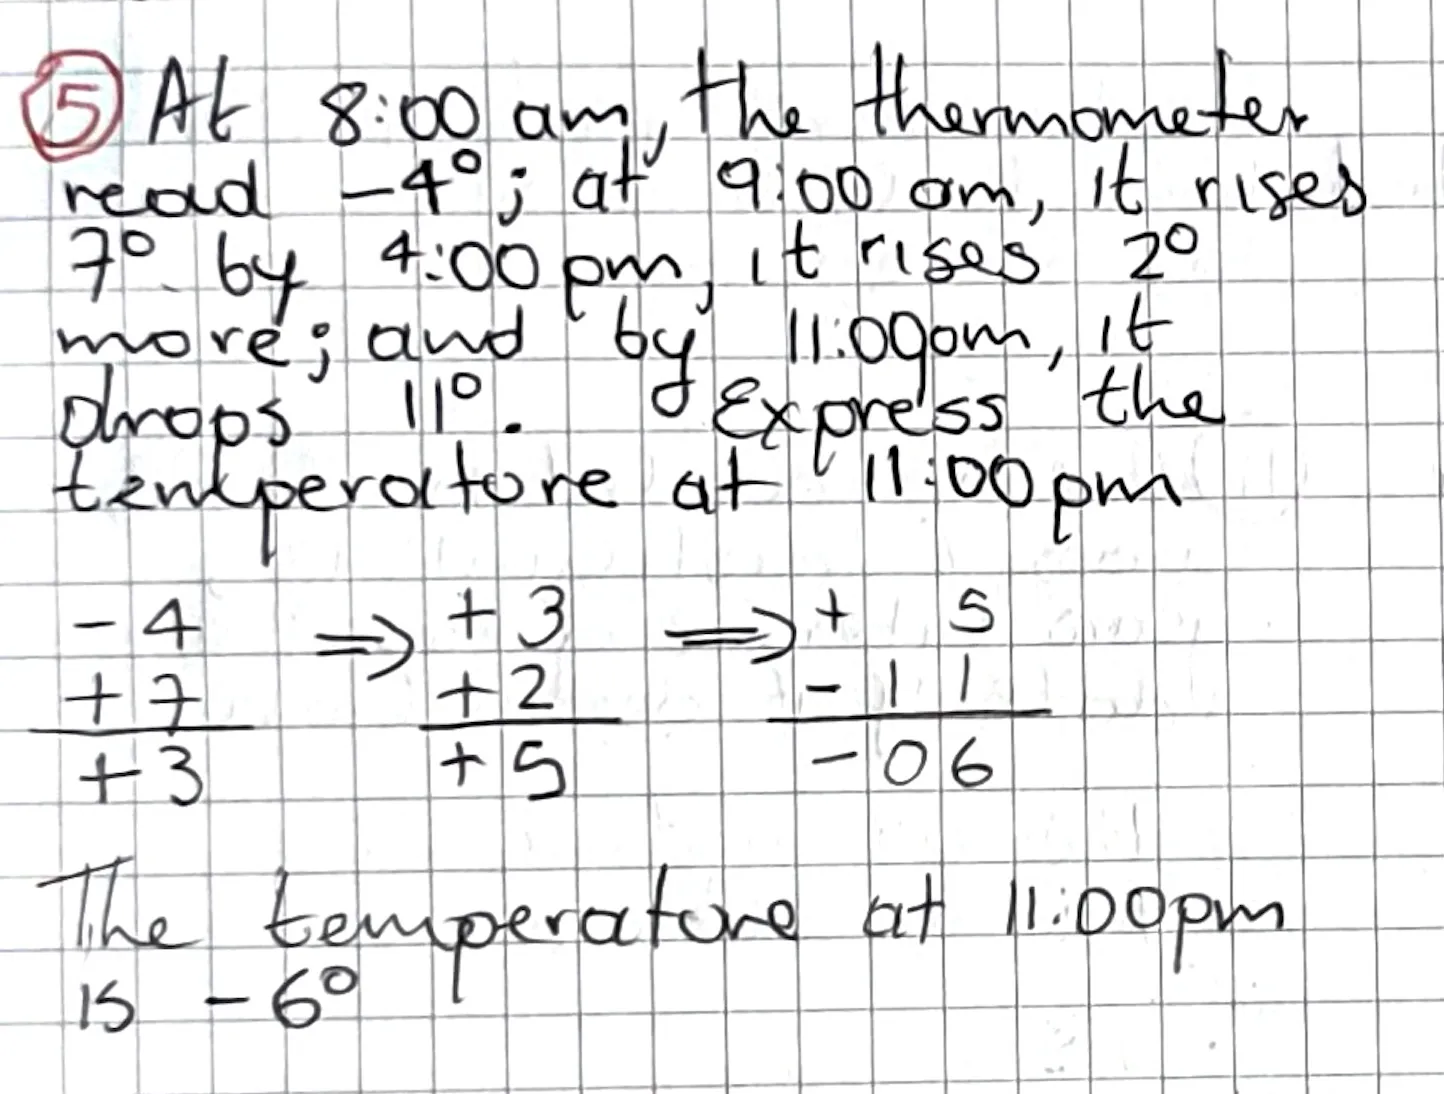 ⑤ At 8:00 am, the thermometer
read -4°; at 9:00 am, it rises
7° by 4:00 pm, it rises 2°
more; and by 11:00am, it
drops 11°. Express the
temperature at 11:00 pm
- 4 ⇒ + 3 ⇒ + 5
+ 7 + 2 - 1 1
+ 3 + 5 - 0 6
The temperature at 11:00pm
is - 6°